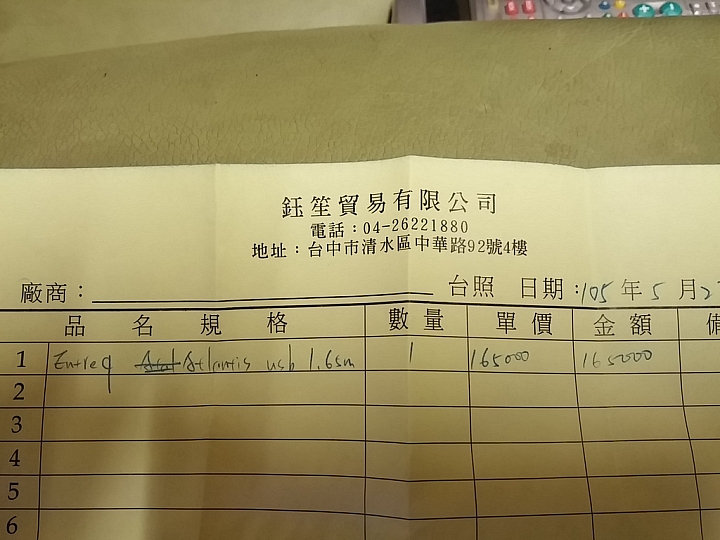 鈺笙貿易有限公司
電話：04-26221880
地址：台中市清水區中華路92號4樓
廠商： 台照 日期：105年5月2
品名規格 數量 單價 金額 備
1 Entreq Atlantis usb 1.65m 1 165000 165000
2
3
4
5
6